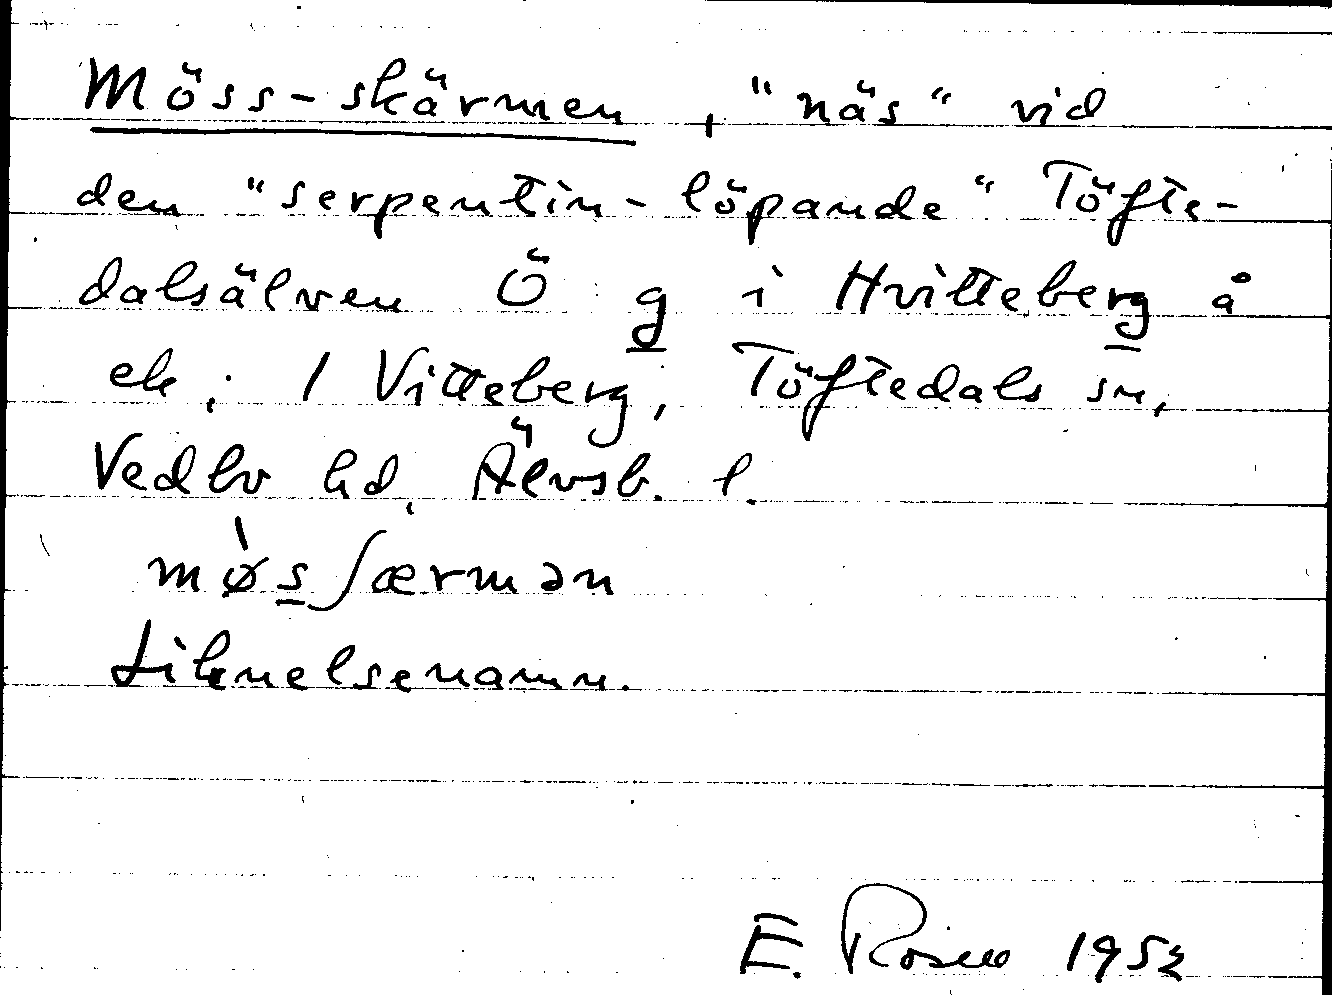 Möss-skärmen, "näs" vid
den "serpentin-löpande" Töfte-
dalsälven Ö g i Hvitteberg å
ek; 1 Vitteberg, Töftedals sn,
Vedbo hd, Älvsb. l.
møsʃærmən
Liknelsenamn.
E. Rosell 1952